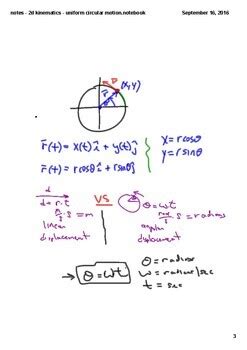 notes - 2d kinematics - uniform circular motion.notebook
September 16, 2016
(x,y)
r̄(t) = x(t)î + y(t)ĵ
x = rcosθ
y = rsinθ
r̄(t) = rcosθî + rsinθĵ
d
d = r·t
m/s · s = m
linear
displacement
VS
θ = ωt
rad/s · s = radians
angular
displacement
→ θ = ωt
θ = radians
ω = radians/sec
t = sec
3